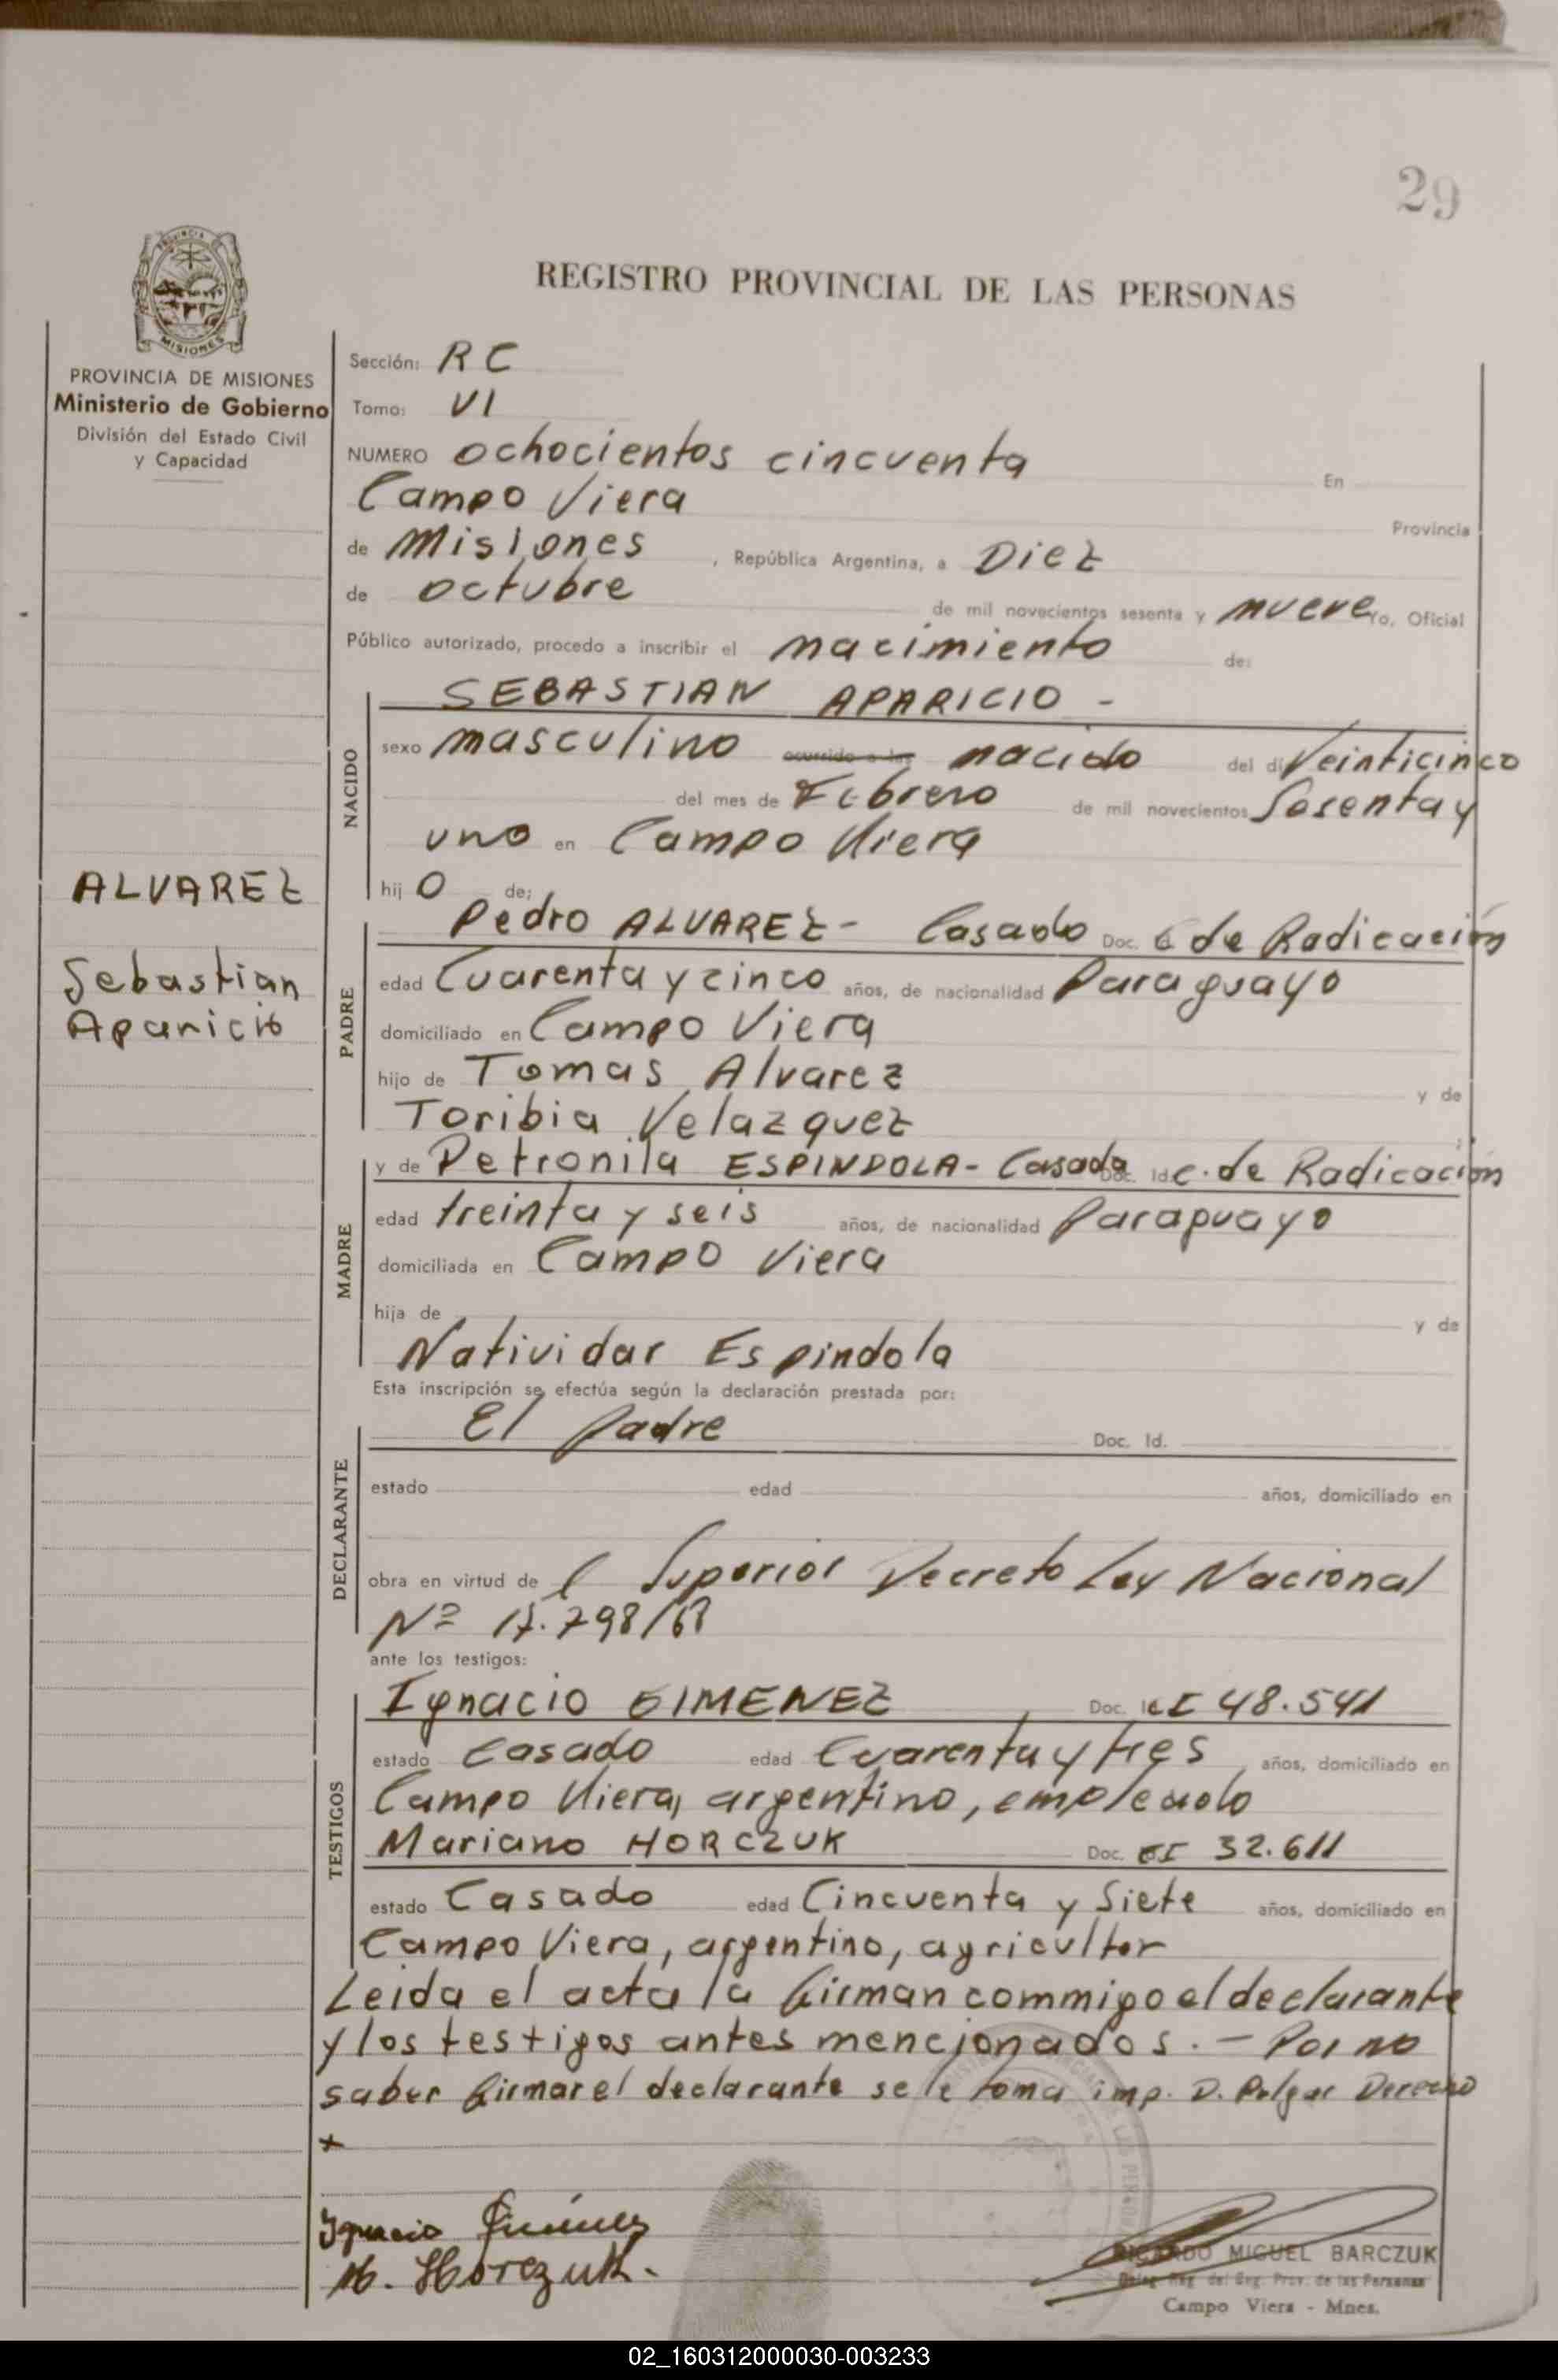 29
REGISTRO PROVINCIAL DE LAS PERSONAS
PROVINCIA DE MISIONES
Ministerio de Gobierno
División del Estado Civil
y Capacidad
Sección: RC
Tomo: VI
NUMERO ochocientos cincuenta En
Campo Viera Provincia
de Misiones, República Argentina, a Diez
de octubre de mil novecientos sesenta y nueve, Yo, Oficial
Público autorizado, procedo a inscribir el nacimiento de:
SEBASTIAN APARICIO -
NACIDO
sexo masculino ocurrido a las nacido del día Veinticinco
del mes de Febrero de mil novecientos Sesenta y
uno en Campo Viera
hijo de:
ALVAREZ
Sebastian
Aparicio
PADRE
Pedro ALVAREZ - Casado Doc. C de Radicación
edad Cuarenta y cinco años, de nacionalidad Paraguayo
domiciliado en Campo Viera
hijo de Tomas Alvarez y de
Toribia Velazquez
MADRE
y de Petronila ESPINDOLA - Casada Doc. Id. C. de Radicación
edad treinta y seis años, de nacionalidad Paraguayo
domiciliada en Campo Viera
hija de y de
Natividar Espindola
Esta inscripción se efectúa según la declaración prestada por:
DECLARANTE
El padre Doc. Id.
estado edad años, domiciliado en
obra en virtud de l Superior Decreto Ley Nacional
Nº 17.798/68
ante los testigos:
TESTIGOS
Ignacio GIMENEZ Doc. Id. CI 48.541
estado Casado edad Cuarenta y tres años, domiciliado en
Campo Viera, argentino, empleado
Mariano HORCZUK Doc. CI 32.611
estado Casado edad Cincuenta y Siete años, domiciliado en
Campo Viera, argentino, agricultor
Leida el acta la firman commigo el declarante
y los testigos antes mencionados. - Por no
saber firmar el declarante se le toma imp. D. Pulgar Derecho
Ignacio Gimenez
M. Horczuk.
RICARDO MIGUEL BARCZUK
Deleg. Reg. del Reg. Prov. de las Personas
Campo Viera - Mnes.
02_160312000030-003233